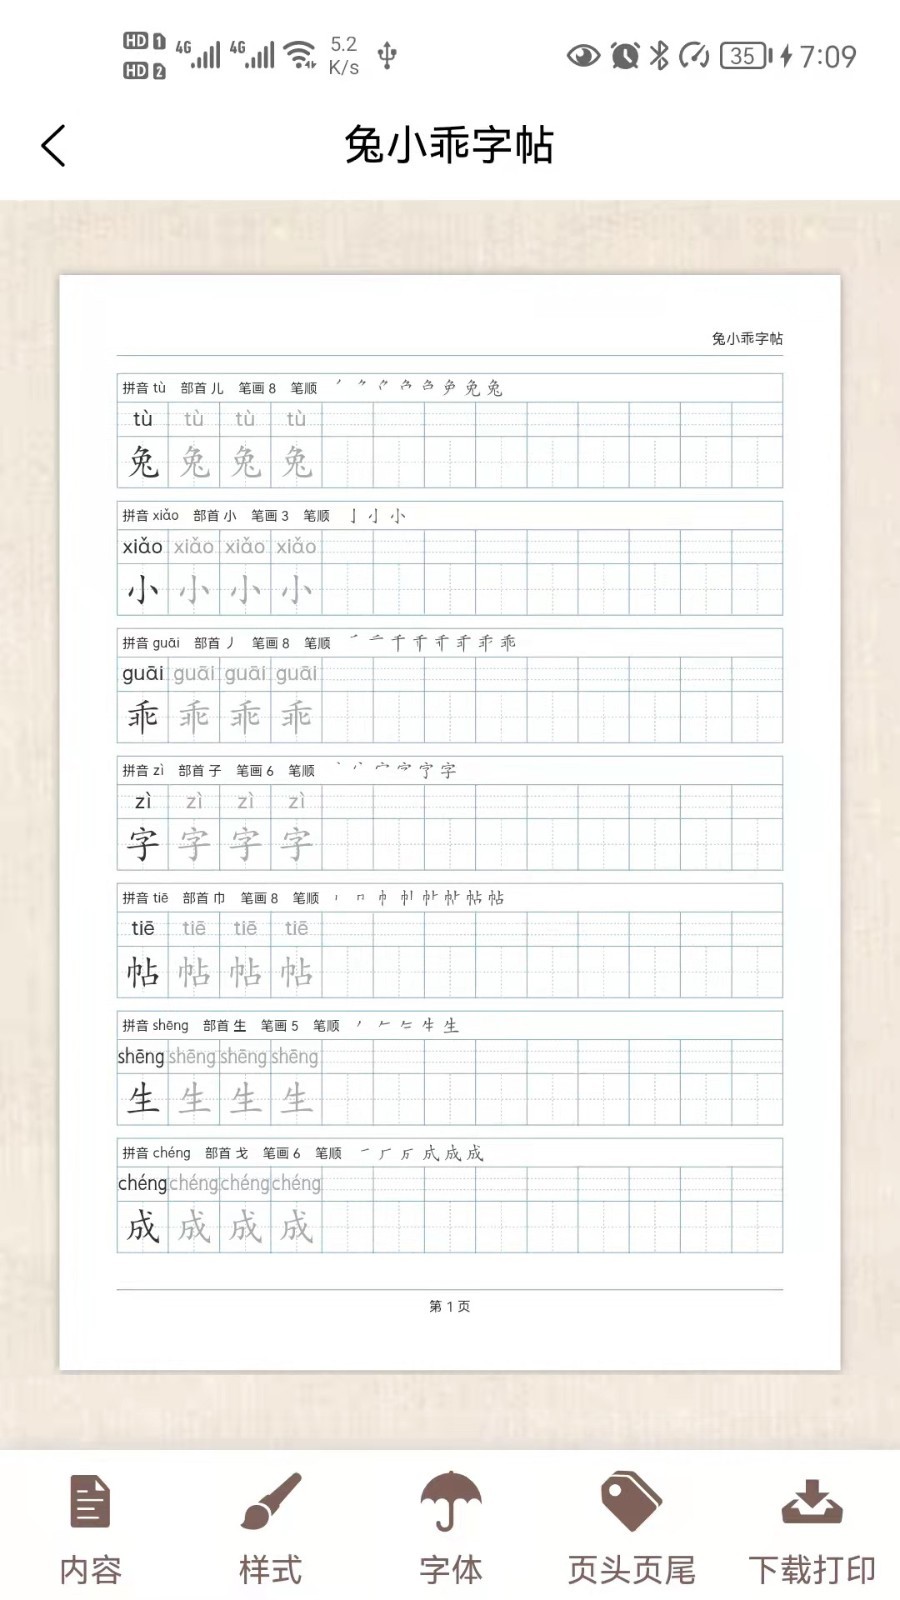 HD 1 4G 4G 5.2 35 7:09
HD 2 K/s
兔小乖字帖
兔小乖字帖
拼音 tù 部首 儿 笔画 8 笔顺
tù tù tù tù
兔 兔 兔 兔
拼音 xiǎo 部首 小 笔画 3 笔顺 亅 小 小
xiǎo xiǎo xiǎo xiǎo
小 小 小 小
拼音 guāi 部首 丿 笔画 8 笔顺
guāi guāi guāi guāi
乖 乖 乖 乖
拼音 zì 部首 子 笔画 6 笔顺
zì zì zì zì
字 字 字 字
拼音 tiē 部首 巾 笔画 8 笔顺
tiē tiē tiē tiē
帖 帖 帖 帖
拼音 shēng 部首 生 笔画 5 笔顺
shēng shēng shēng shēng
生 生 生 生
拼音 chéng 部首 戈 笔画 6 笔顺
chéng chéng chéng chéng
成 成 成 成
第 1 页
内容 样式 字体 页头页尾 下载打印